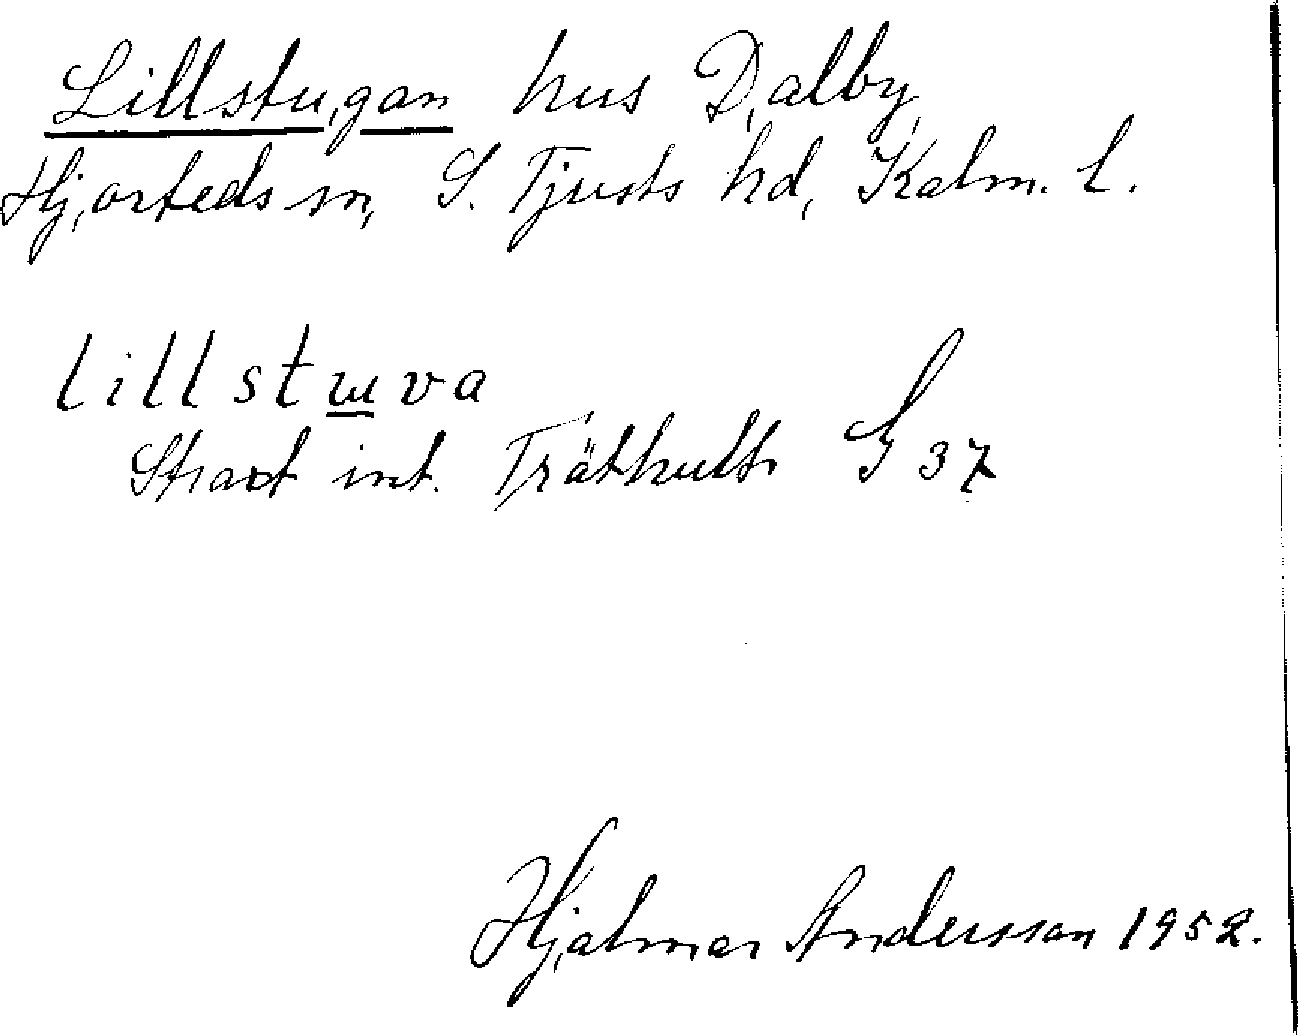 Lillstugan hus Dalby
Hjorteds sn, S. Tjusts hd, Kalm. l.
lillstɯva
Strax int. Träthult G 37
Hjalmar Andersson 1952.